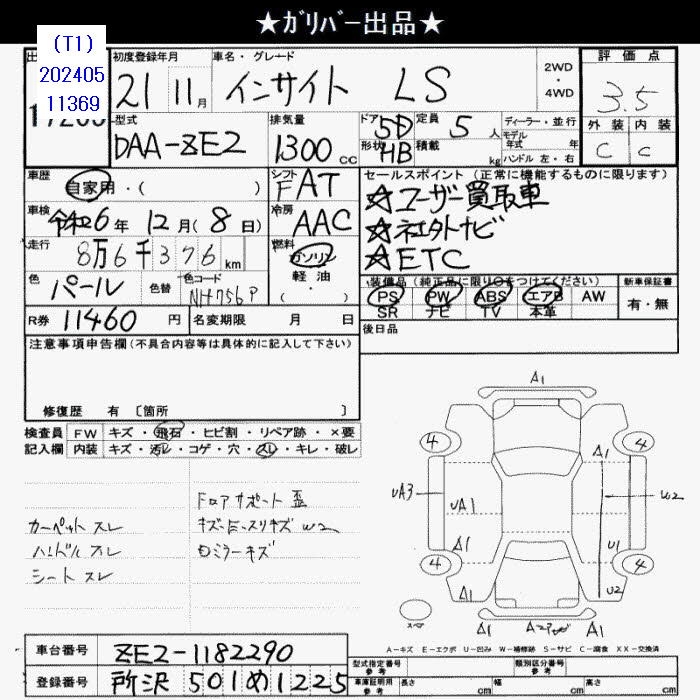 ★ガリバー出品★
(T1)
202405
11369
初度登録年月
21 11月
車名・グレード
インサイト LS
2WD
・
4WD
評価点
3.5
外装 内装
C C
型式
DAA-ZE2
排気量
1300 cc
ドア 5D
形状 HB
定員 5 人
積載 kg
ディーラー・並行
モデル
年式 年
ハンドル 左・右
車歴
自家用・( )
シフト
FAT
セールスポイント (正常に機能するものに限ります)
☆ユーザー買取車
☆ETC
車検
令和6年 12月(8日)
冷房
AAC
走行
8万6千376 km
燃料
ガソリン
軽油
・( )
色
パール
色替
色コード
NH756P
装備品(純正品に限り○をつけてください)
PS PW ABS エアB AW
SR ナビ TV 本革
新車保証書
有・無
R券 11460 円
名変期限 月 日
後日品
注意事項申告欄(不具合内容等は具体的に記入して下さい)
修復歴 有 〔箇所 〕
検査員 FW キズ・飛石・ヒビ割・リペア跡・×要
記入欄 内装 キズ・汚レ・コゲ・穴・スレ・キレ・破レ
カーペット スレ
ハンドル スレ
シート スレ
キズ
A1
4 4
A1
UA3
UA1
A1
U1
4 4
A1
U2
A1 A1
A-キズ E-エクボ U-凹み W-補修跡 S-サビ C-腐食 XX-交換済
車台番号 ZE2-1182290
登録番号 所沢 501め1225
型式指定番号
参考
類別区分番号
参考
車庫証明用
参考
長さ cm 幅 cm 高さ cm